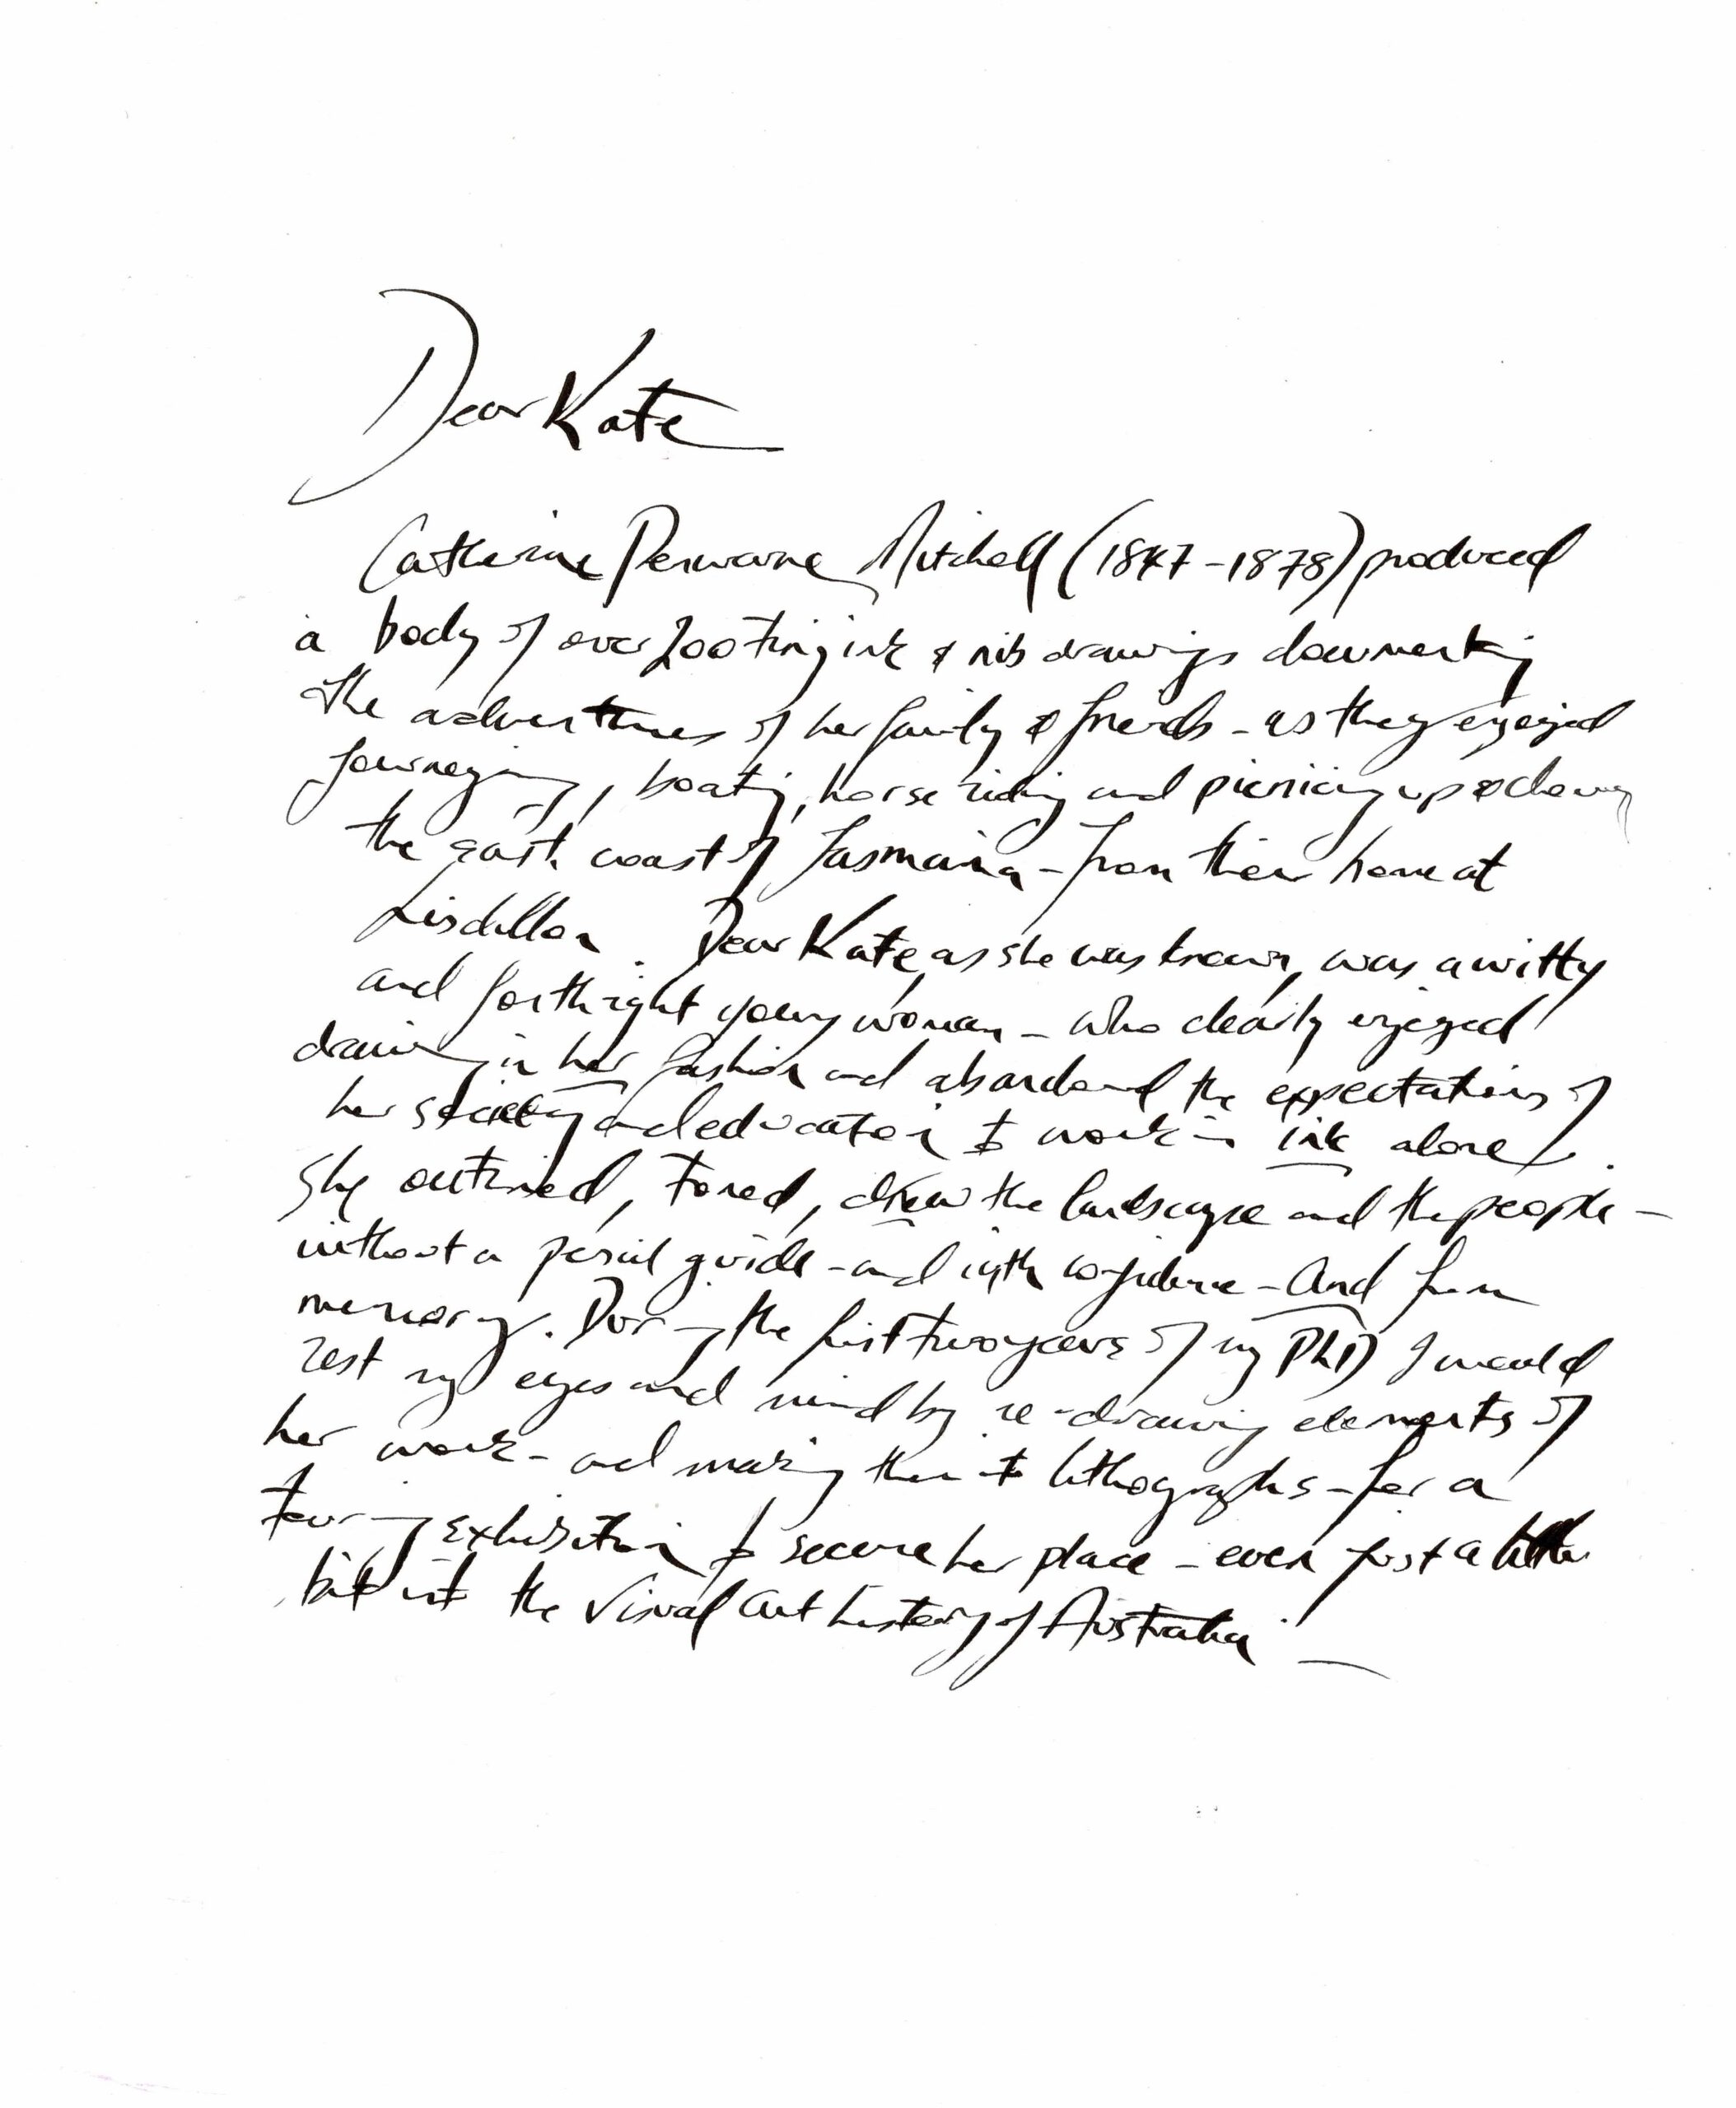 Dear Kate
Catherine Penwarne Mitchell (1847-1878) produced
a body of over 200 tiny ink & nib drawings documenting
the adventures of her family & friends - as they enjoyed
journeying, boating, horse riding and picnicing up & down
the east coast of Tasmania - from their home at
Lisdillon. Dear Kate, as she was known, was a witty
and forthright young woman - who clearly enjoyed
drawing in her fashion and abandoned the expectations of
her society and education to work in ink alone.
She outlined, toned, drew the landscape and the people -
without a pencil guide - and with confidence - And from
memory. During the first two years of my PhD I would
rest my eyes and mind by re-drawing elements of
her work - and making them into lithographs - for a
touring exhibition to secure her place - even just a little
bit into the Visual Art history of Australia -